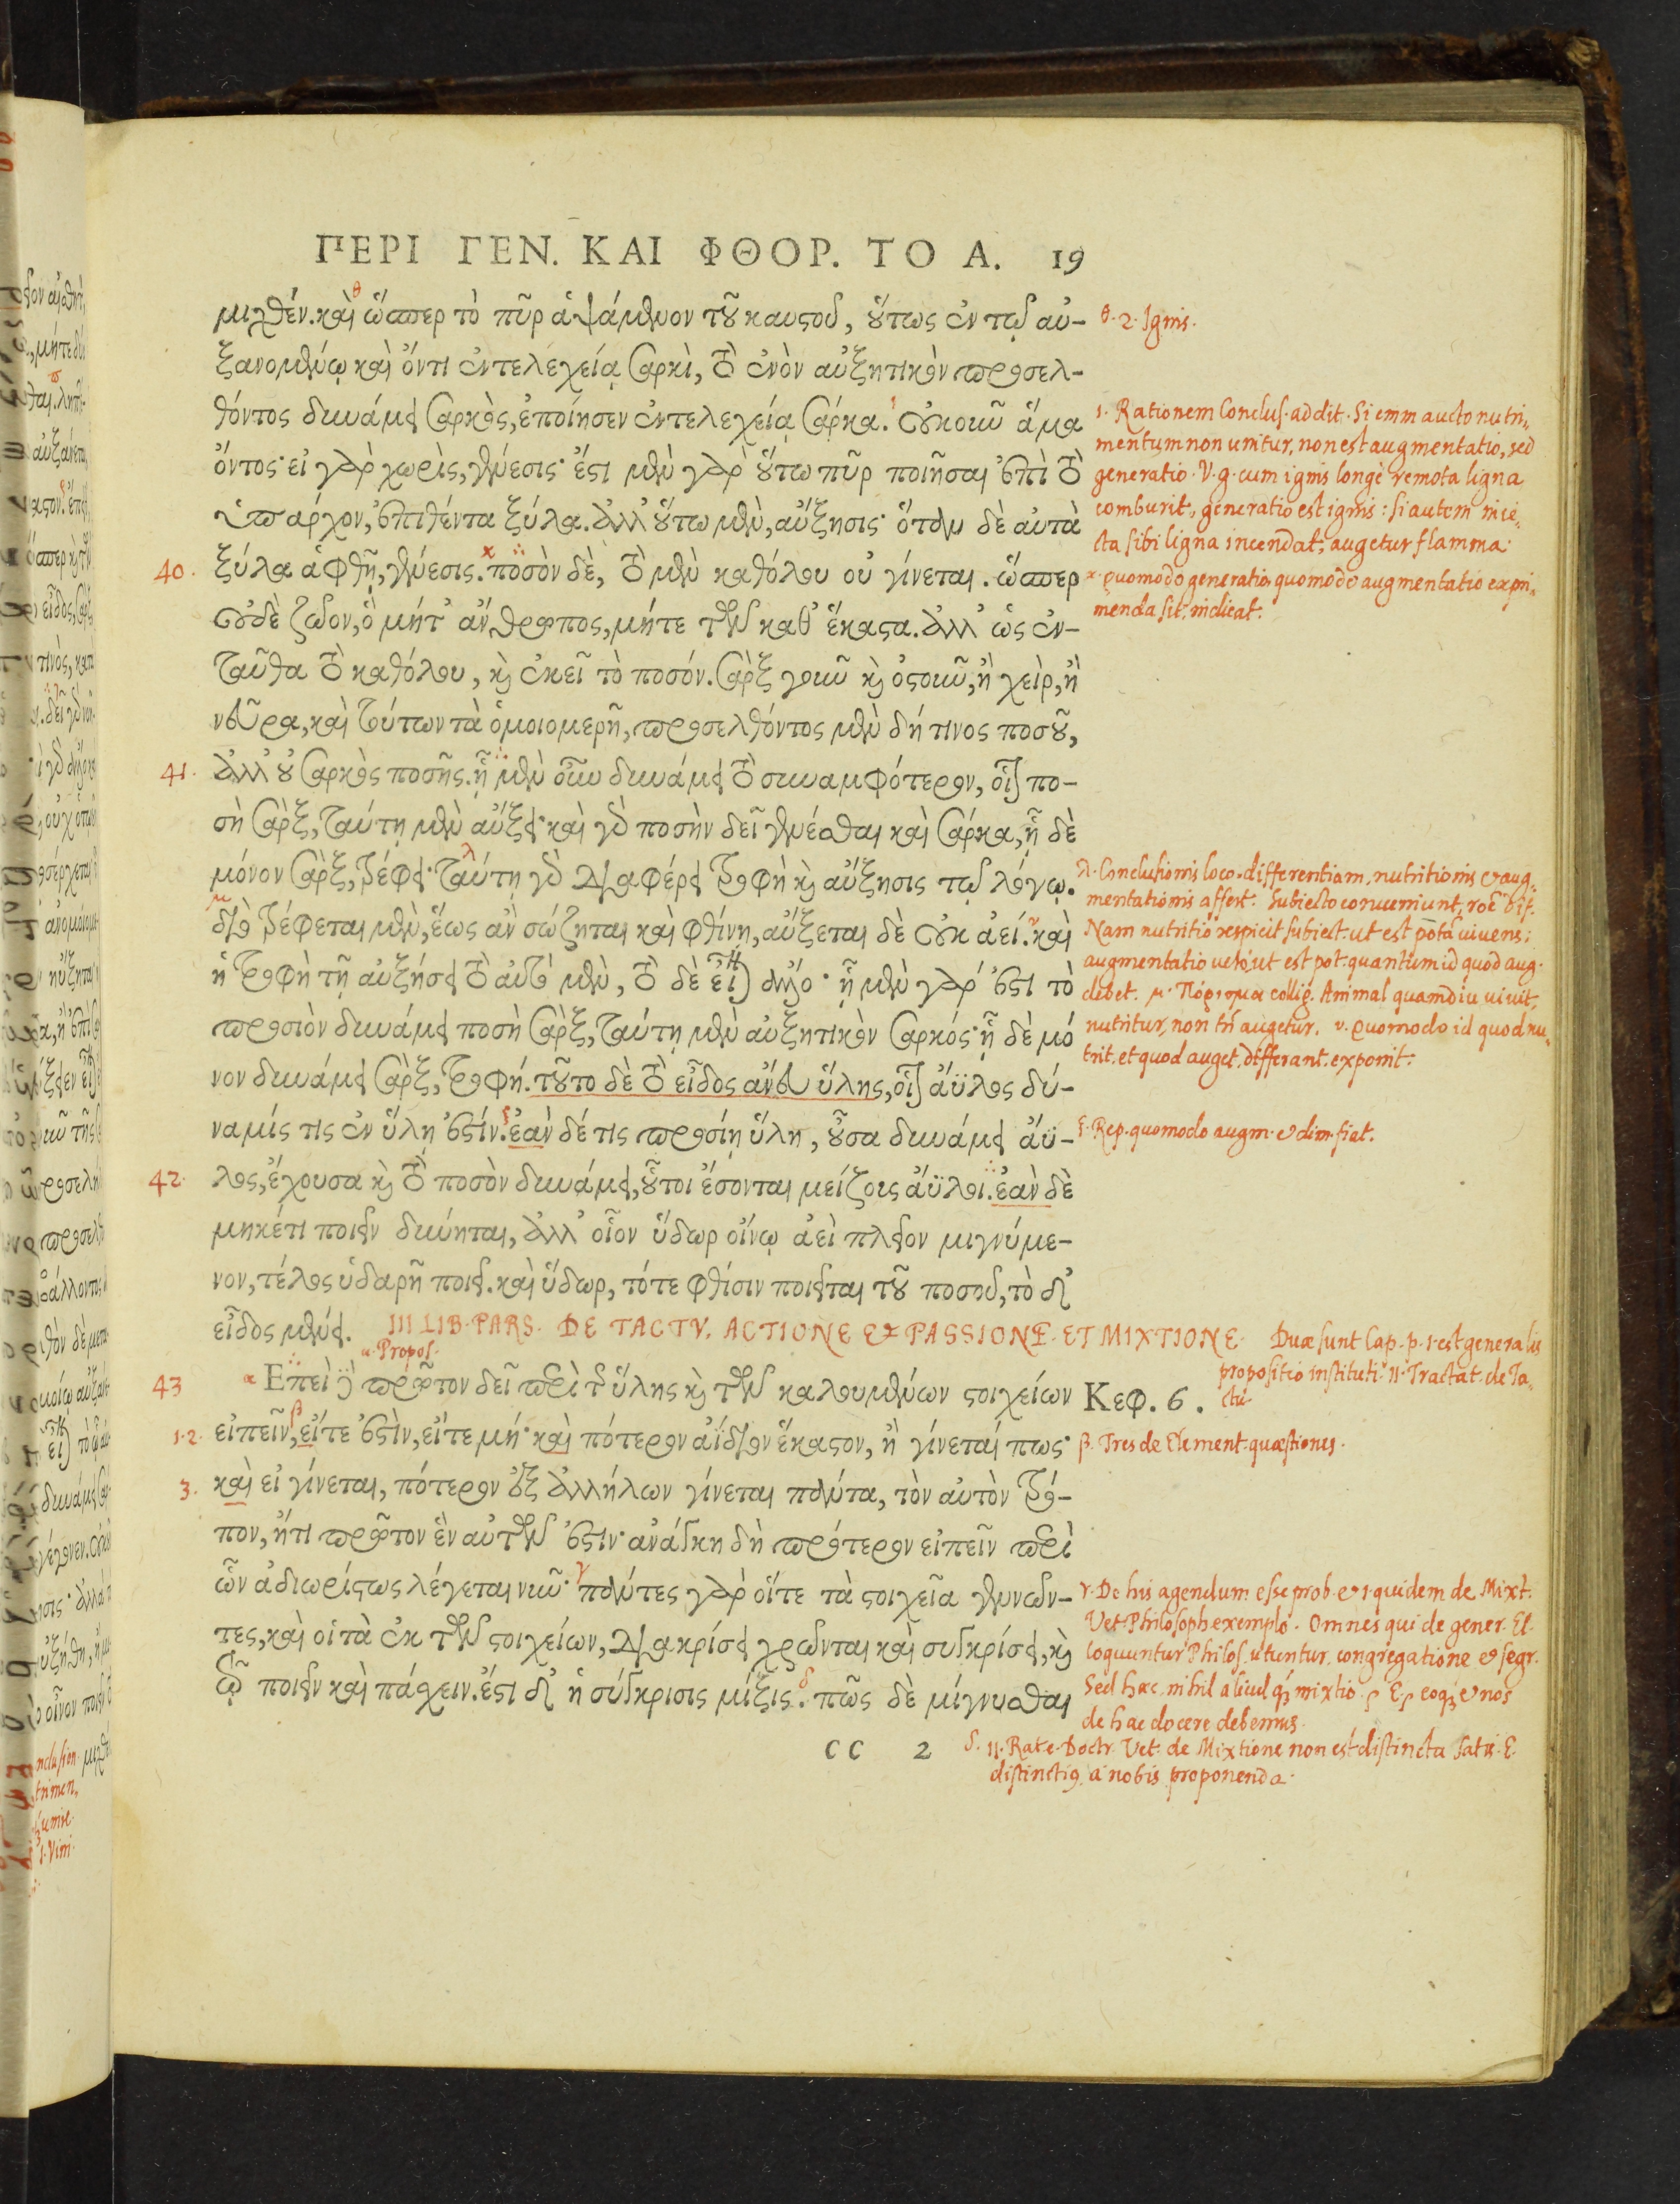 ΠΕΡΙ ΓΕΝ. ΚΑΙ ΦΘΟΡ. ΤΟ Α. 19
μιχθέν. καὶ ὥσπερ τὸ πῦρ ἁψάμενον τοῦ καυστοῦ, οὕτως ἐν τῷ αὐ-
θ. 2. Ignis.
ξανομένῳ καὶ ὄντι ἐντελεχείᾳ σαρκὶ, τὸ ἐνὸν αὐξητικὸν προσελ-
θόντος δυνάμει σαρκὸς, ἐποίησεν ἐντελεχείᾳ σάρκα. οὐκοῦν ἅμα
ὄντος· εἰ γὰρ χωρὶς, γένεσις· ἔστι μὲν γὰρ οὕτω πῦρ ποιῆσαι ἐπὶ τὸ
ὑπάρχον, ἐπιθέντα ξύλα. ἀλλ' οὕτω μὲν, αὔξησις· ὅταν δὲ αὐτὰ
ι. Rationem Conclus. addit. Si enim aucto nutri-
mentum non unitur, non est augmentatio, sed
generatio. V. g. cum ignis longè remota ligna
comburit, generatio est ignis: si autem inie-
cta sibi ligna incendat, augetur flamma.
40. ξύλα ἁφθῇ, γένεσις. ποσὸν δὲ, τὸ μὲν καθόλου οὐ γίνεται. ὥσπερ
ϰ. Quomodo generatio, quomodo augmentatio expri-
menda sit, indicat.
οὐδὲ ζῶον, ὃ μήτ' ἄνθρωπος, μήτε τῶν καθ' ἕκαστα. ἀλλ' ὡς ἐν-
ταῦθα τὸ καθόλου, κἀκεῖ τὸ ποσόν. σὰρξ γοῦν καὶ ὀστοῦν, ἢ χεὶρ, ἢ
νεῦρα, καὶ τούτων τὰ ὁμοιομερῆ, προσελθόντος μὲν δή τινος ποσοῦ,
41. ἀλλ' οὐ σαρκὸς ποσῆς. ᾗ μὲν οὖν δυνάμει τὸ συναμφότερον, οἷον πο-
σὴ σὰρξ, ταύτῃ μὲν αὔξει· καὶ γὰρ ποσὴν δεῖ γενέσθαι καὶ σάρκα, ᾗ δὲ
μόνον σὰρξ, τρέφει· ταύτῃ γὰρ διαφέρει τροφὴ καὶ αὔξησις τῷ λόγῳ.
διὸ τρέφεται μὲν, ἕως ἂν σώζηται καὶ φθίνῃ, αὔξεται δὲ οὐκ ἀεί. καὶ
ἡ τροφὴ τῇ αὐξήσει τὸ αὐτὸ μὲν, τὸ δὲ εἶναι ἄλλο· ᾗ μὲν γάρ ἐστι τὸ
προσιὸν δυνάμει ποσὴ σὰρξ, ταύτῃ μὲν αὐξητικὸν σαρκός· ᾗ δὲ μό
νον δυνάμει σὰρξ, τροφή. τοῦτο δὲ τὸ εἶδος ἄνευ ὕλης, οἷον ἄϋλος δύ-
λ. Conclusionis loco differentiam nutritionis & aug-
mentationis affert. Subiecto conueniunt, roē dīf.
Nam nutritio respicit subiect. ut est potā uiuens:
augmentatio uerò, ut est pot. quantum id quod aug.
debet. μ. Πόρισμα collig. Animal quamdiu uiuit,
nutritur, non tn̄ augetur. ν. Quomodo id quod nu-
trit, et quod auget, differant, exponit.
ναμίς τις ἐν ὕλῃ ἐστίν. ἐὰν δέ τις προσίῃ ὕλη, οὖσα δυνάμει ἄϋ-
ξ. Resp. quomodo augm. & dim. fiat.
42. λος, ἔχουσα καὶ τὸ ποσὸν δυνάμει, οὗτοι ἔσονται μείζους ἄϋλοι. ἐὰν δὲ
μηκέτι ποιεῖν δύνηται, ἀλλ' οἷον ὕδωρ οἴνῳ ἀεὶ πλεῖον μιγνύμε-
νον, τέλος ὑδαρῆ ποιεῖ. καὶ ὕδωρ, τότε φθίσιν ποιεῖται τοῦ ποσοῦ, τὸ δ'
εἶδος μένει.
III LIB. PARS. DE TACTV, ACTIONE ET PASSIONE. ET MIXTIONE.
Duæ sunt Cap. p. 1. est generalis
propositio instituti. II. Tractat. de Ta-
ctu.
α. Propos.
43 Ἐπεὶ δὲ πρῶτον δεῖ περὶ τῆς ὕλης καὶ τῶν καλουμένων στοιχείων
Κεφ. 6.
1.2. εἰπεῖν, εἴτε ἐστὶν, εἴτε μή· καὶ πότερον ἀΐδιον ἕκαστον, ἢ γίνεταί πως·
β. Tres de Element. quæstiones.
3. καὶ εἰ γίνεται, πότερον ἐξ ἀλλήλων γίνεται πάντα, τὸν αὐτὸν τρό-
πον, ἤτι πρῶτον ἓν αὐτῶν ἐστιν· ἀνάγκη δὴ πρότερον εἰπεῖν περὶ
ὧν ἀδιωρίστως λέγεται νῦν· πάντες γὰρ οἵτε τὰ στοιχεῖα γεννῶν-
τες, καὶ οἱ τὰ ἐκ τῶν στοιχείων, διακρίσει χρῶνται καὶ συγκρίσει, καὶ
τῷ ποιεῖν καὶ πάσχειν. ἔστι δ' ἡ σύγκρισις μίξις. πῶς δὲ μίγνυσθαι
γ. De his agendum esse prob. & 1. quidem de Mixt.
Vet. Philosoph. exemplo. Omnes qui de gener. El.
loquuntur Philos. utuntur congregatione & segr.
Sed hæc nihil aliud q̃ mixtio. eoq; & nos
de hac docere debemus.
CC 2
δ. II. Rat. e. Doctr. Vet. de Mixtione non est distincta satis. E.
distinctiꝰ a nobis proponenda.